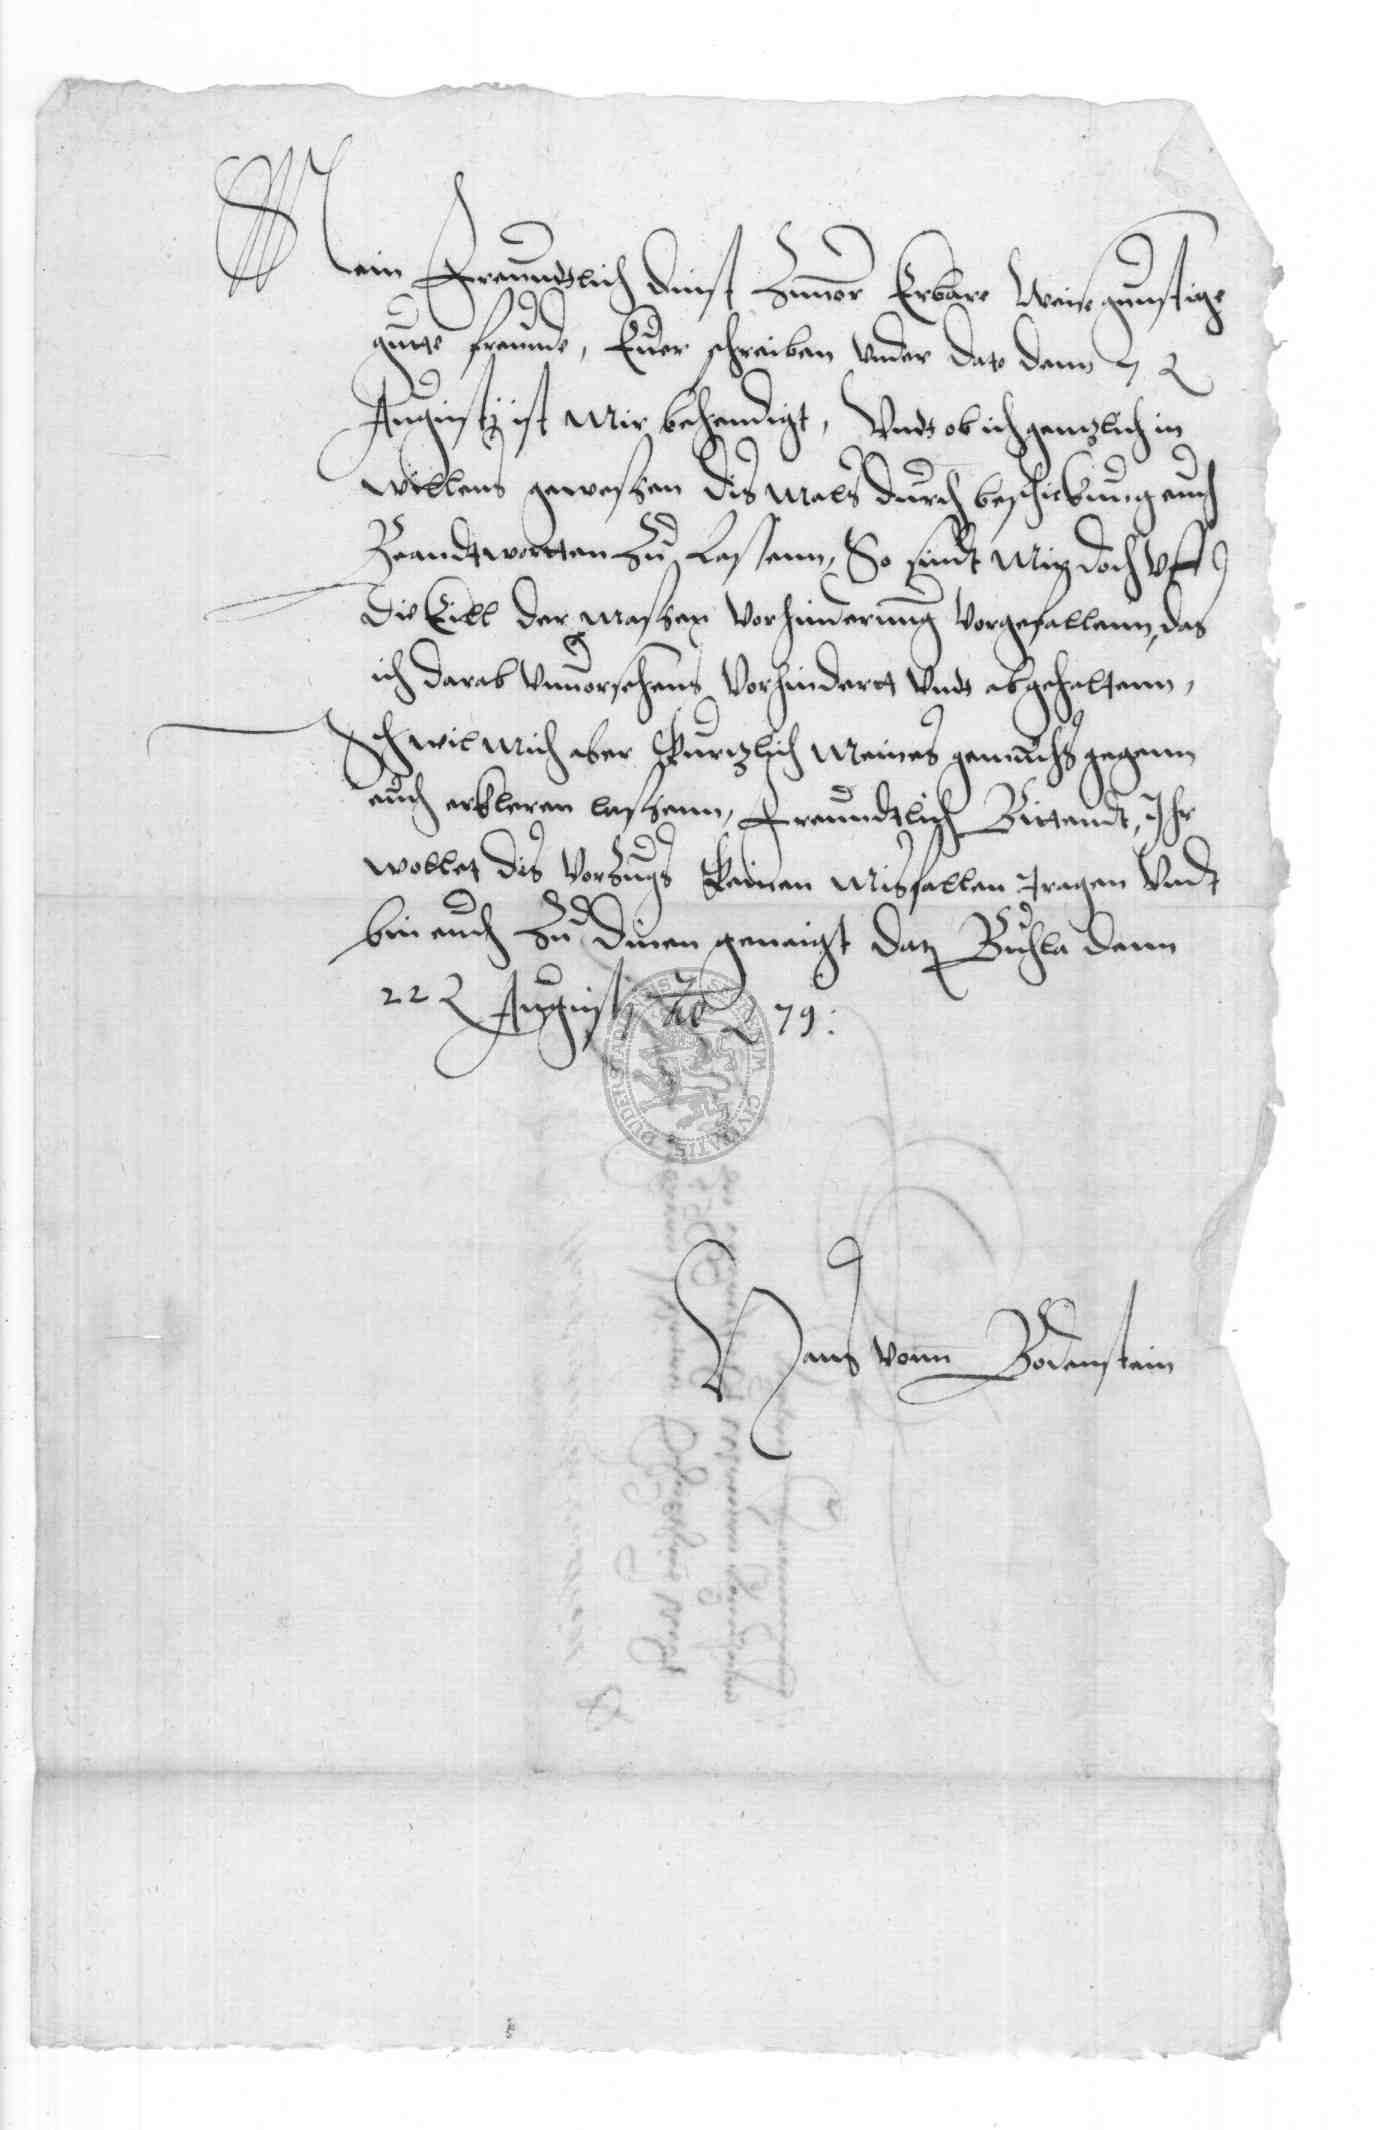 Mein Freundtlich dinst Zuuor Erbare Weise gunstige
gutte freunde, Euer schreiben vnder dato denn 7 
Augustj ist Mir behendigt, Vndt ob ich gentzlich in
willens geweszen dis Mals durch beschickung euch
Beandtwortten Zu Lassenn, So sindt Mir doch vff
die Eill der maszen vorhinderung vorgefallenn, das
ich darab vnuorsehens vorhindert vndt abgehaltenn,
Ich wil mich aber kurtzlich Meines gemuths gegenn
euch erkleren laszenn, Freundtlich Bittendt, Ihr
wollet dis vorzugs keinen Misfallen tragen vndt
bin euch Zu dinen geneigt Dat Buhla denn
22 Augustj Ao 79:
Hans vonn Bodenstein
SIGILLUM CIVITATIS DUDERSTADT